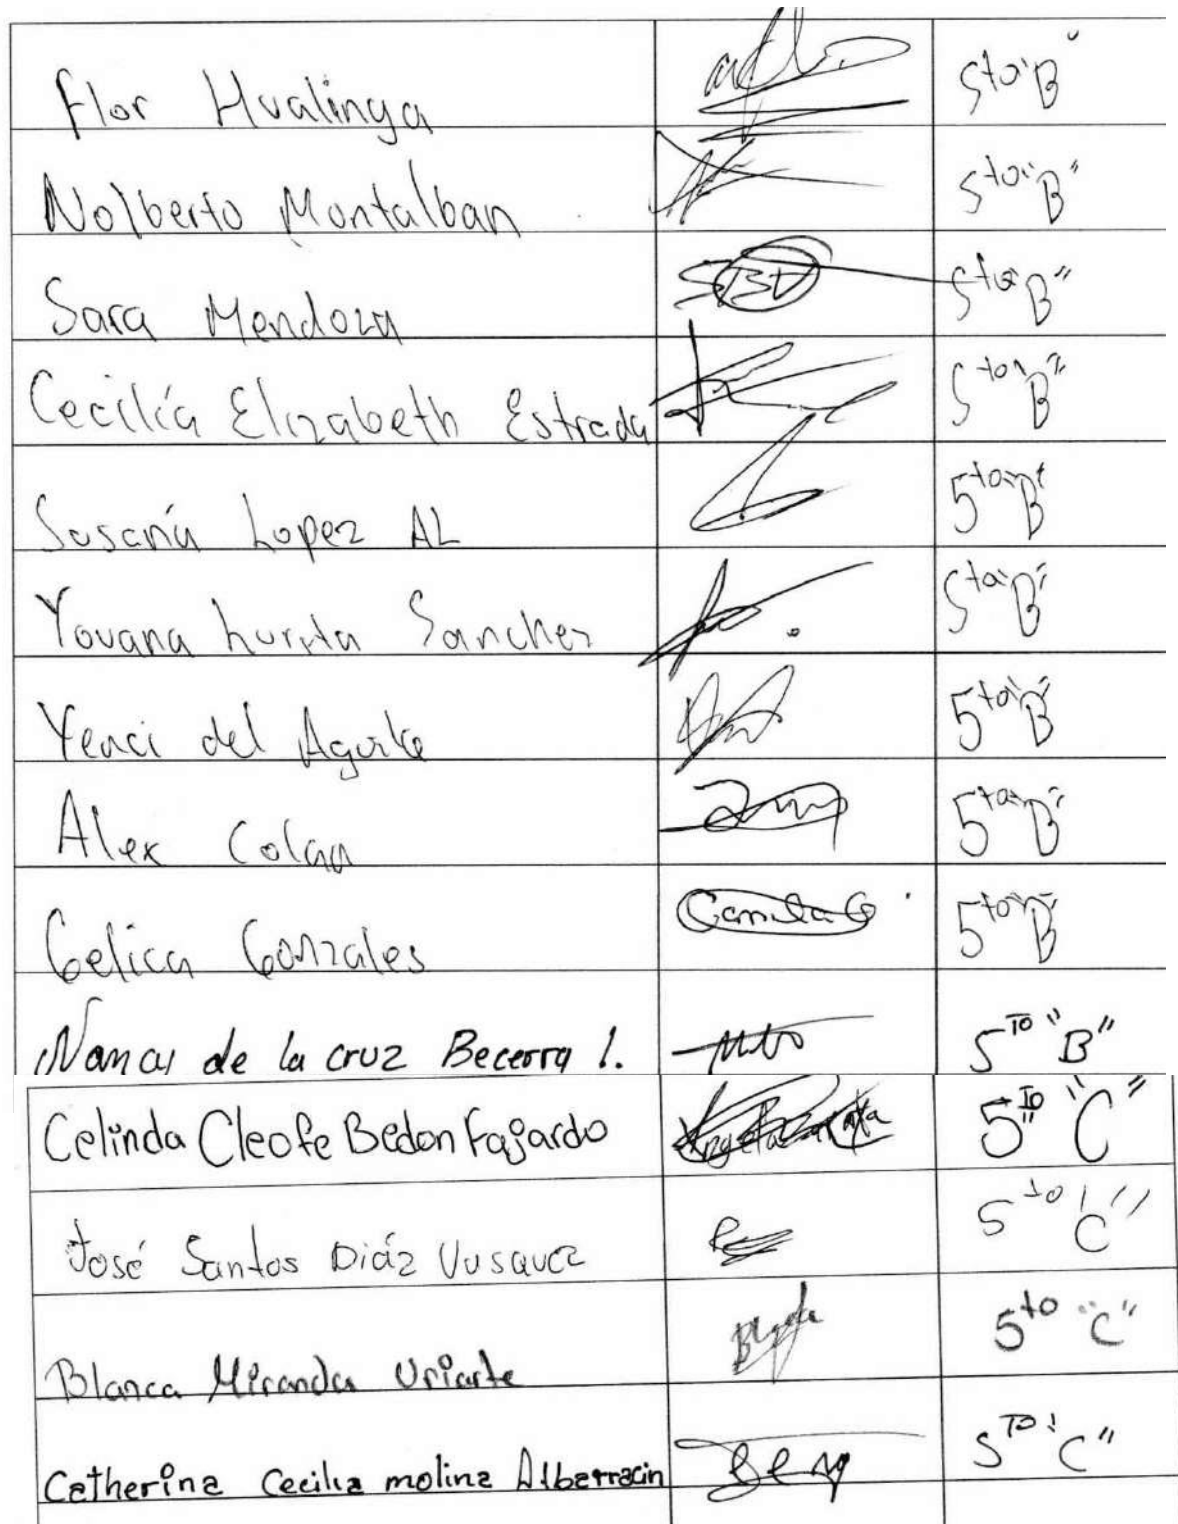 Flor Hualinga 5to "B"
Nolberto Montalban 5to "B"
Sara Mendoza SBD 5to "B"
Cecilía Elizabeth Estrada 5to "B"
Susana Lopez AL 5to "B"
Yovana Sanchez 5to "B"
Yenci del Aguila 5to "B"
Alex Colan 5to "B"
Gelica Gonzales Camila G 5to "B"
Nancy de la cruz Becerra l. 5TO "B"
Celinda Cleofe Bedon Fajardo 5TO "C"
José Santos Diáz Vusquez 5to "C"
Blanca Miranda Uriarte 5to "C"
Catherina Cecilia molina Albarracin 5TO "C"